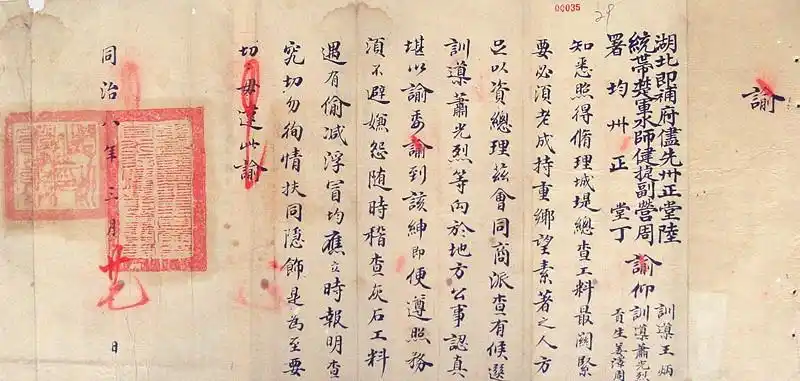 00035
29
諭
湖北即補府儘先州正堂陸
統帶襄軍水師健捷副營周
署均州正堂丁
諭仰
訓導王炳
訓導蕭光烈
貢生姜漳周
知悉照得脩理城堤總查工料最關緊
要必須老成持重鄉望素著之人方
足以資總理茲會同商派查有候選
訓導蕭光烈等向於地方公事認真
堪以諭委諭到該紳即便遵照務
須不避嫌怨随時稽查灰石工料
遇有偷减浮冒均應立時報明查
究切勿徇情扶同隱飾是為至要
切切毋違此諭
同治八年三月廿
日